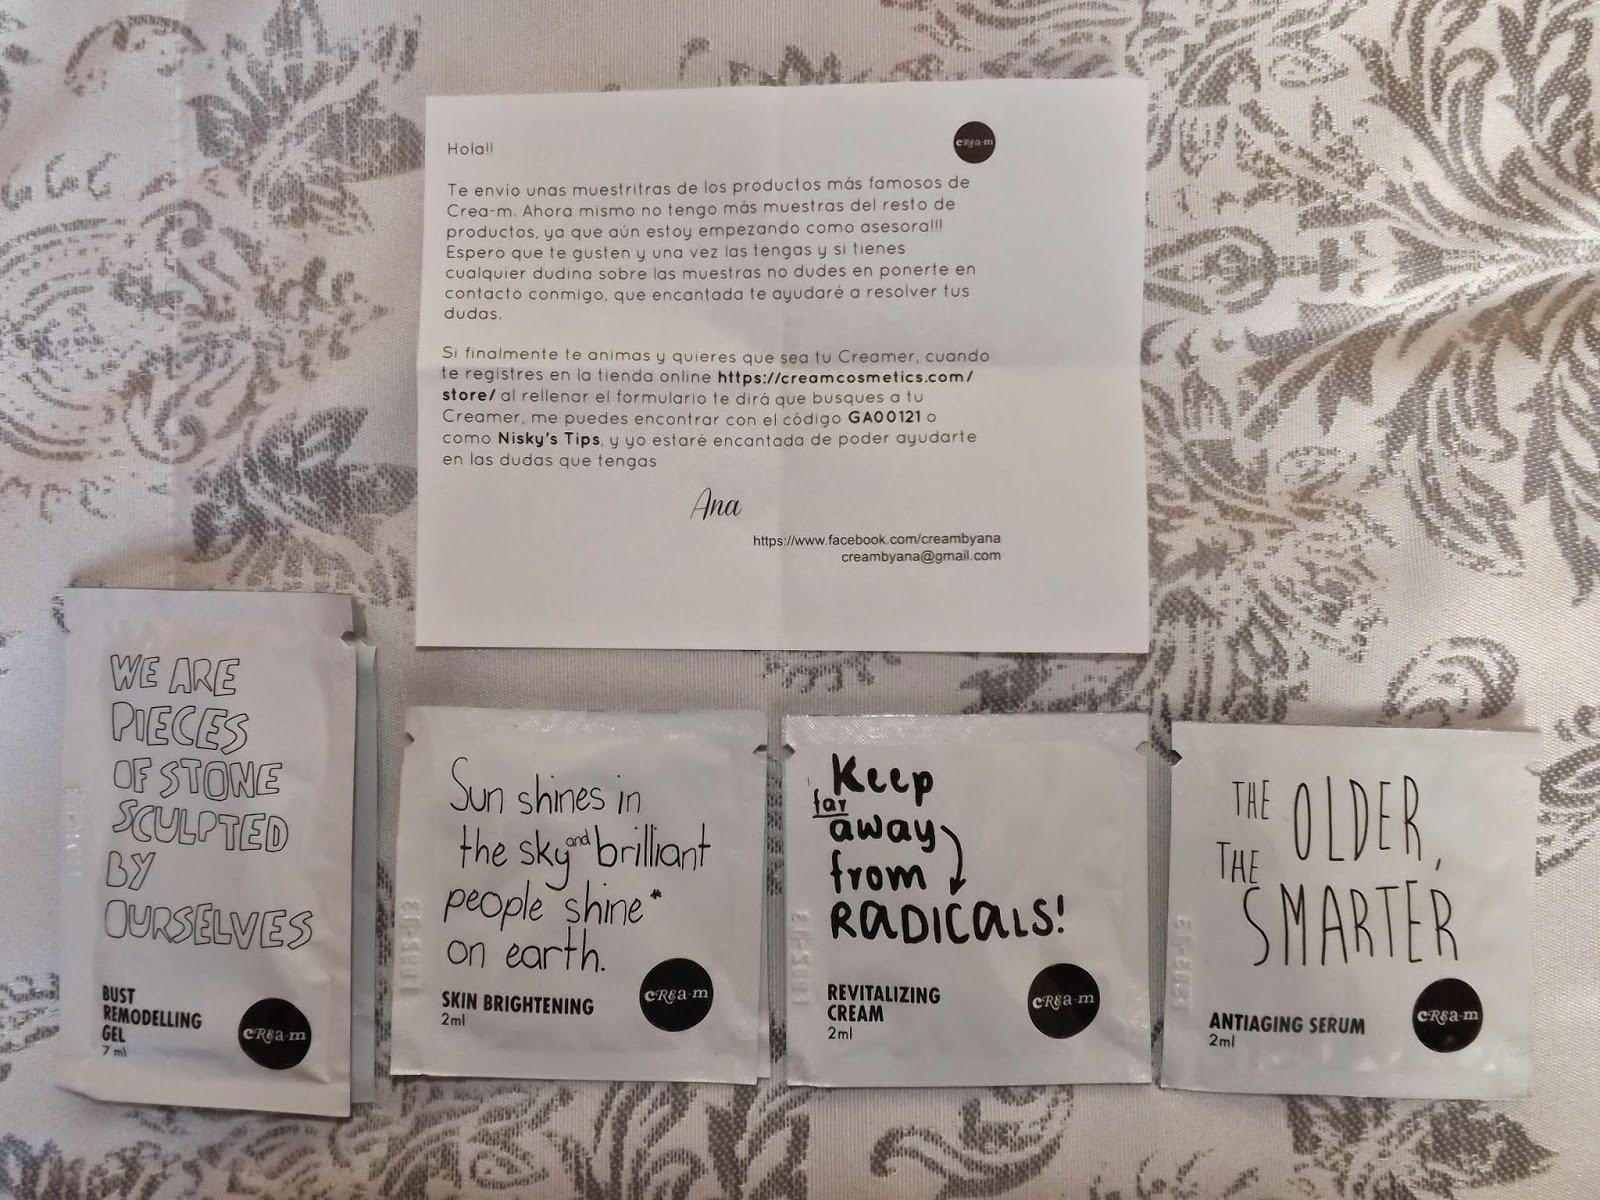 Hola!!
cREa-m
Te envío unas muestritras de los productos más famosos de
Crea-m. Ahora mismo no tengo más muestras del resto de
productos, ya que aún estoy empezando como asesora!!!
Espero que te gusten y una vez las tengas y si tienes
cualquier dudina sobre las muestras no dudes en ponerte en
contacto conmigo, que encantada te ayudaré a resolver tus
dudas.
Si finalmente te animas y quieres que sea tu Creamer, cuando
te registres en la tienda online https://creamcosmetics.com/
store/ al rellenar el formulario te dirá que busques a tu
Creamer, me puedes encontrar con el código GA00121 o
como Nisky's Tips, y yo estaré encantada de poder ayudarte
en las dudas que tengas
Ana
https://www.facebook.com/creambyana
creambyana@gmail.com
WE ARE
PIECES
OF STONE
SCULPTED
BY
OURSELVES
BUST
REMODELLING
GEL
7 ml
cREa-m
Sun shines in
the sky and brilliant
people shine*
on earth.
SKIN BRIGHTENING
2ml
cREa-m
Keep
far
away
from
RADICALS!
REVITALIZING
CREAM
2ml
cREa-m
THE OLDER,
THE
SMARTER
ANTIAGING SERUM
2ml
cREa-m